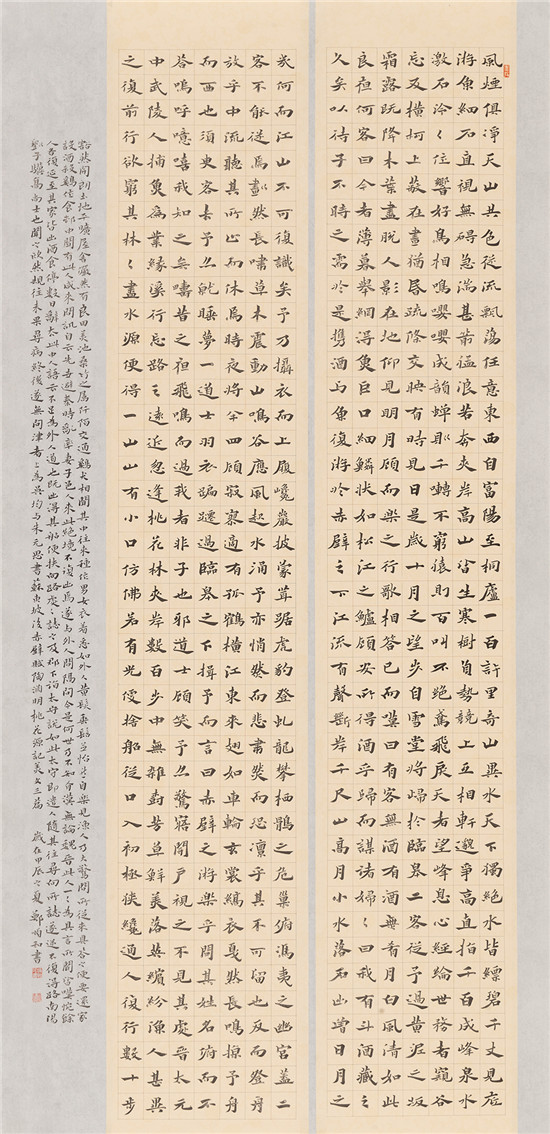 風煙俱淨天山共色從流飄蕩任意東西自富陽至桐廬一百許里奇山異水天下獨絕水皆縹碧千丈見底
游魚細石直視無碍急湍甚葥猛浪若奔夾岸高山皆生寒樹負勢競上互相軒邈爭高直指千百成峰泉水
激石泠々作響好鳥相鳴嚶嚶成韻蟬則千囀不窮猿則百叫不絕鳶飛戾天者望峰息心經綸世務者窺谷
忘反橫柯上蔽在晝猶昏疏條交映有時見日是歲十月之望步自雪堂將歸於臨皋二客從予過黃泥之坂
霜露既降木葉盡脫人影在地仰見明月顧而樂之行歌相答已而嘆曰有客無酒有酒無肴月白風清如此
良夜何客曰今者薄暮舉網得魚巨口細鱗狀如松江之鱸顧安所得酒乎歸而謀諸婦々曰我有斗酒藏之
久矣以待子不時之需於是攜酒与魚復游於赤壁之下江流有聲斷岸千尺山高月小水落石出曾日月之
幾何而江山不可復識矣予乃攝衣而上履巉巖披蒙茸踞虎豹登虬龍攀栖鶻之危巢俯馮夷之幽宮蓋二
客不能從焉劃然長嘯草木震動山鳴谷應風起水涌予亦悄然而悲肅然而恐凜乎其不可留也反而登舟
放乎中流聽其所止而休焉時夜將半四顧寂寥適有孤鶴橫江東來翅如車輪玄裳縞衣戛然長鳴掠予舟
而西也須臾客去予亦就睡夢一道士羽衣蹁躚過臨皋之下揖予而言曰赤壁之游樂乎問其姓名俯而不
答嗚呼噫嘻我知之矣疇昔之夜飛鳴而過我者非子也邪道士顧笑予亦驚寤開戶視之不見其處晉太元
中武陵人捕魚為業緣溪行忘路之遠近忽逢桃花林夾岸數百步中無雜樹芳草鮮美落英繽紛漁人甚異
之復前行欲窮其林々盡水源便得一山山有小口仿佛若有光便捨船從口入初極狹纔通人復行數十步
豁然開朗土地平曠屋舍儼然有良田美池桑竹之屬阡陌交通鷄犬相聞其中往來種作男女衣著悉如外人黃髮垂髫並怡然自樂見漁人乃大驚問所從來具答之便要還家
設酒殺鷄作食村中聞有此人咸來問訊自云先世避秦時亂率妻子邑人來此絕境不復出焉遂与外人間隔問今是何世乃不知有漢無論魏晉此人一一為具言所聞皆嘆惋餘
人各復延至其家皆出酒食停數日辭去此中人語云不足為外人道也既出得其船便扶向路處々誌之及郡下詣太守說如此太守即遣人隨其往尋向所誌遂迷不復得路南陽
劉子驥高尚士也聞之欣然規往未果尋病終後遂無問津者 右為吳均与朱元思書蘇東坡後赤壁賦陶淵明桃花源記美文三篇 歲在甲辰之夏鄭 和書